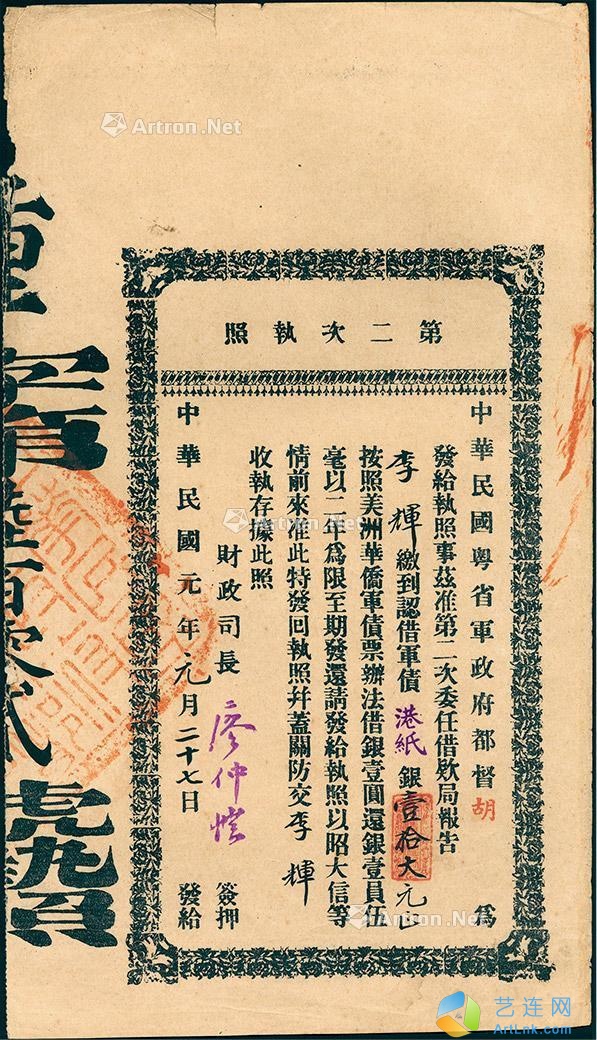 第二次執照
中華民國粵省軍政府都督胡 為
發給執照事茲准第二次委任借欵局報告
李輝繳到認借軍債港紙銀壹拾大元正
按照美洲華僑軍債票辦法借銀壹圓還銀壹員伍
毫以二年為限至期發還請發給執照以昭大信等
情前來准此特發回執照幷蓋關防交李輝
收執存據此照
財政司長 廖仲愷 簽押
中華民國元年元月二十七日 發給
Artron.Net
Artron.Net
Artron.Net
Artron.Net
Artron.Net
Artron.Net
艺连网
ArtLnk.com